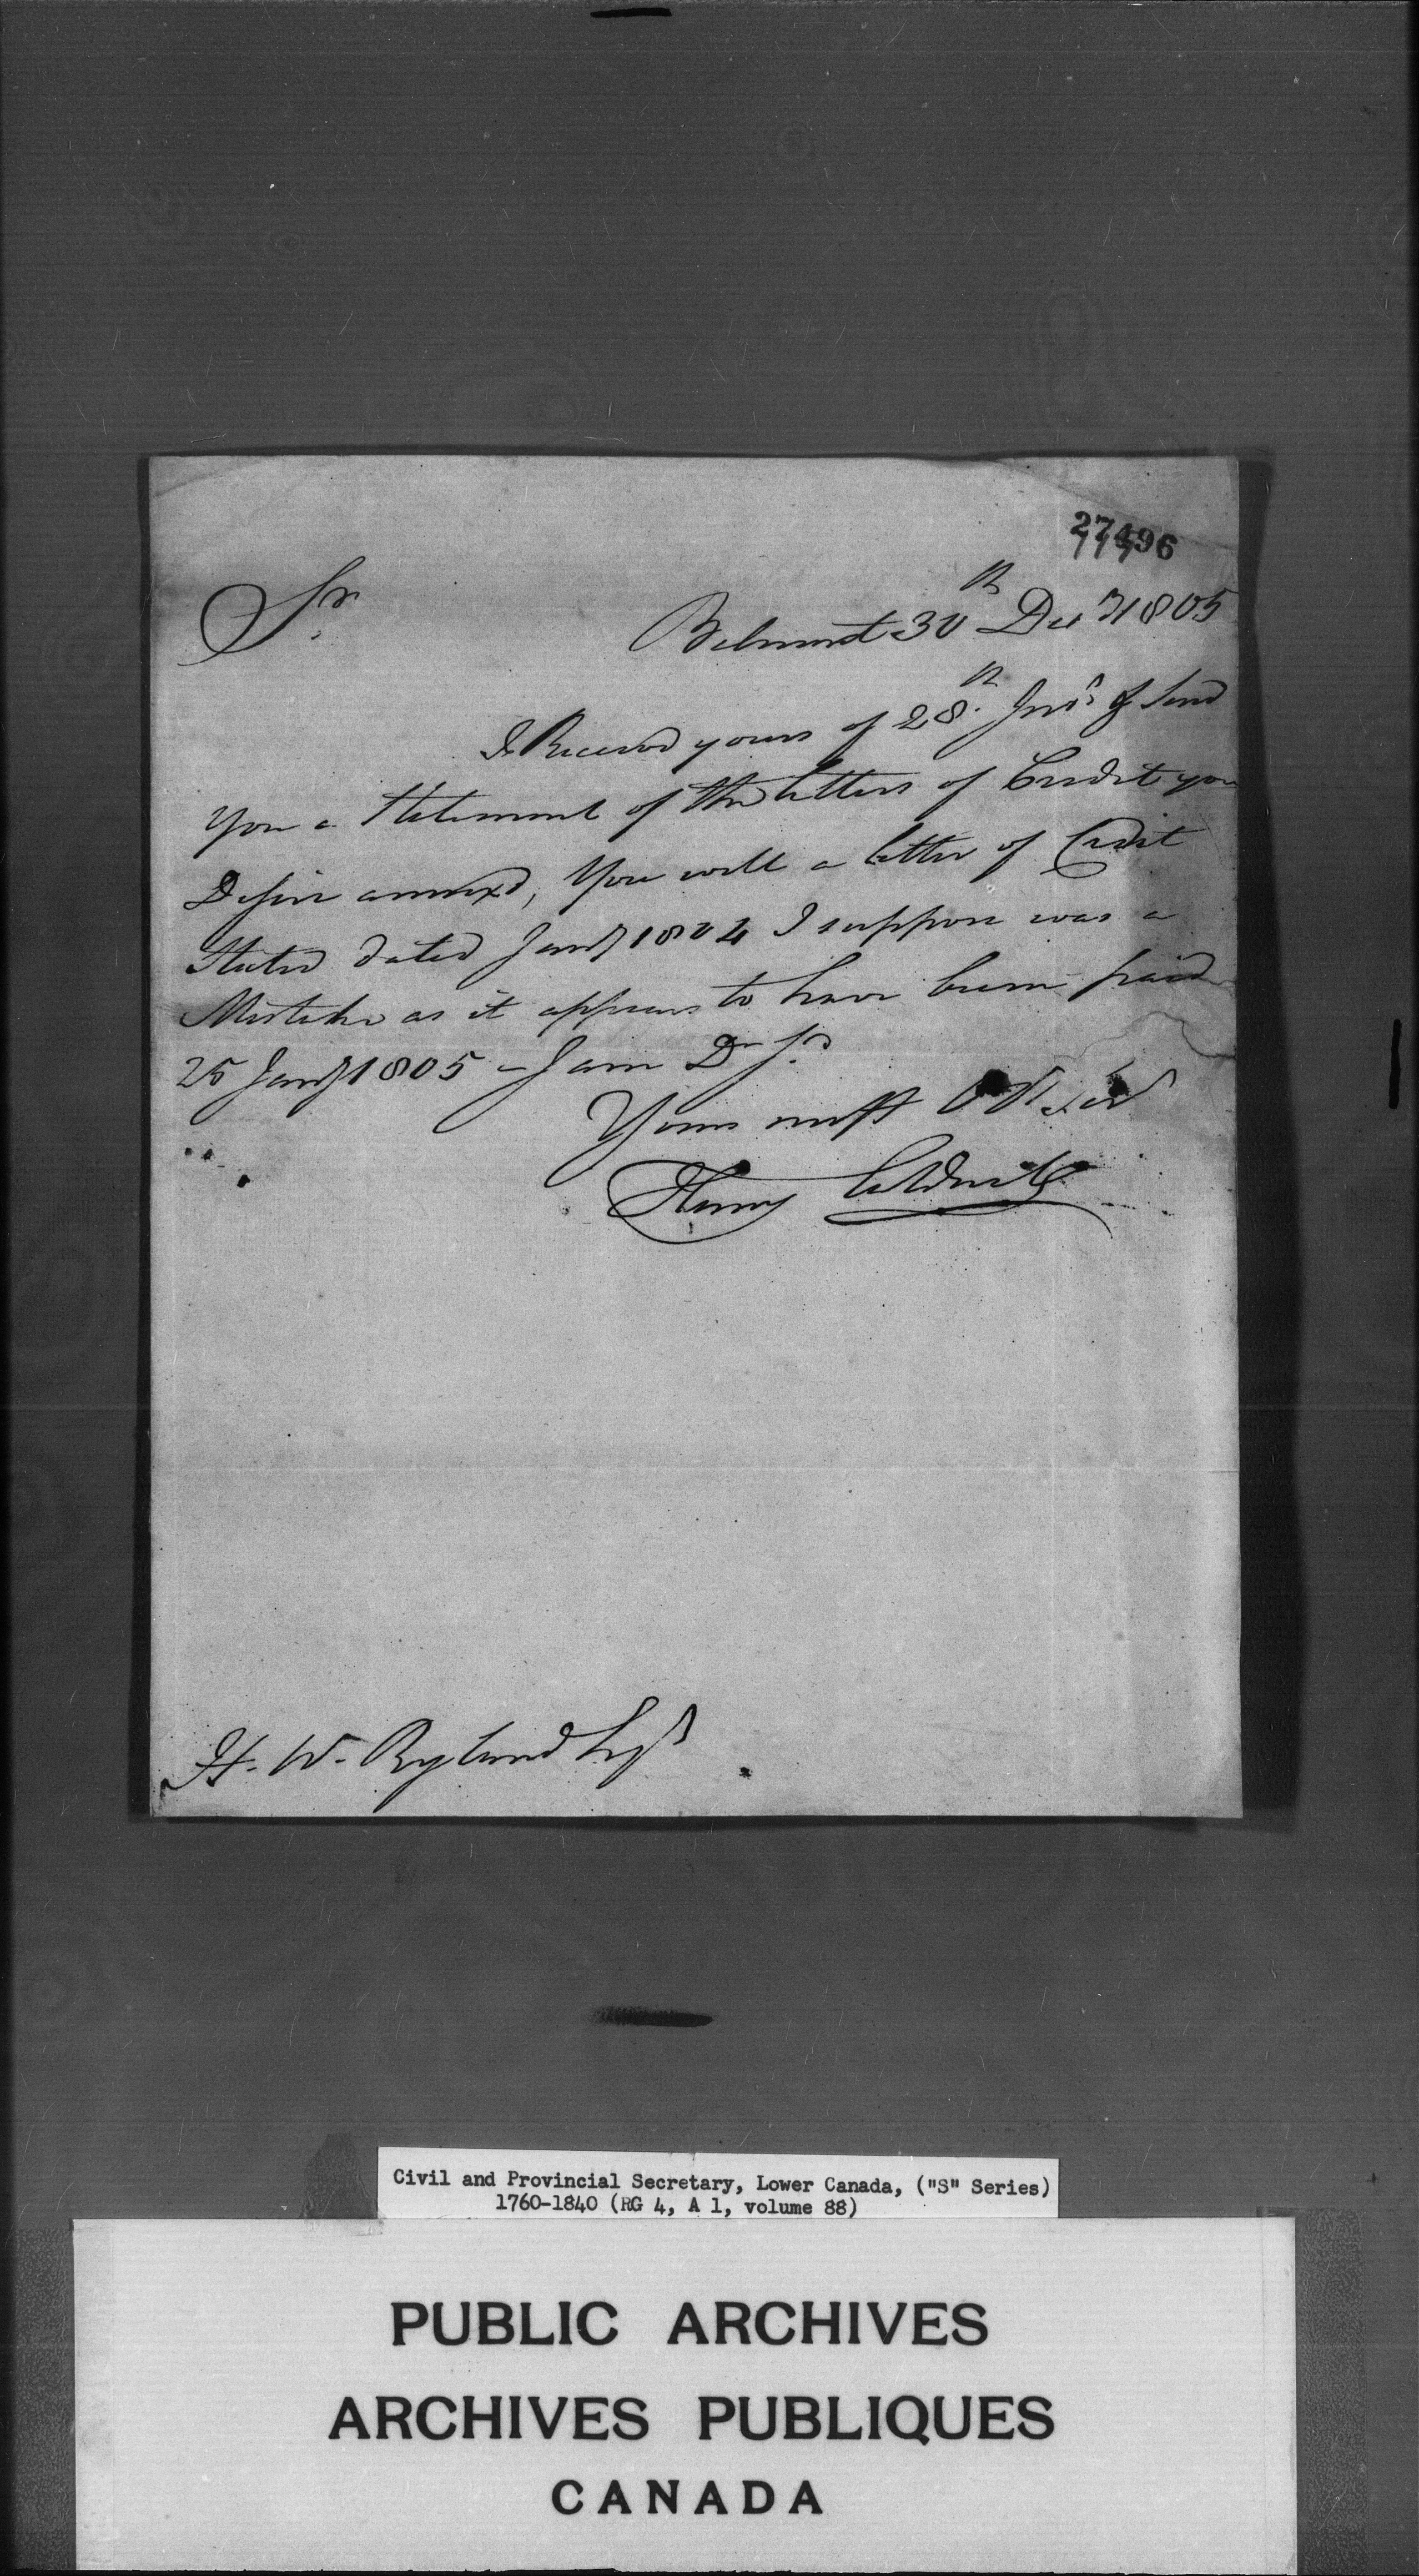 27496
Sr.
Belmont 30th Decr 1805
I Received yours of 28th Inst & send
you a statement of the letters of Credit you
Desire annexd, You will a letter of Credit
Stated dated Jany 1804 I suppose was a
Mistake as it appears to have been paid
25 Jany 1805 - I am Dr Sr
Yours most
Henry Caldwell
H. W. Ryland Esqr
Civil and Provincial Secretary, Lower Canada, ("S" Series)
1760-1840 (RG 4, A 1, volume 88)
PUBLIC ARCHIVES
ARCHIVES PUBLIQUES
CANADA